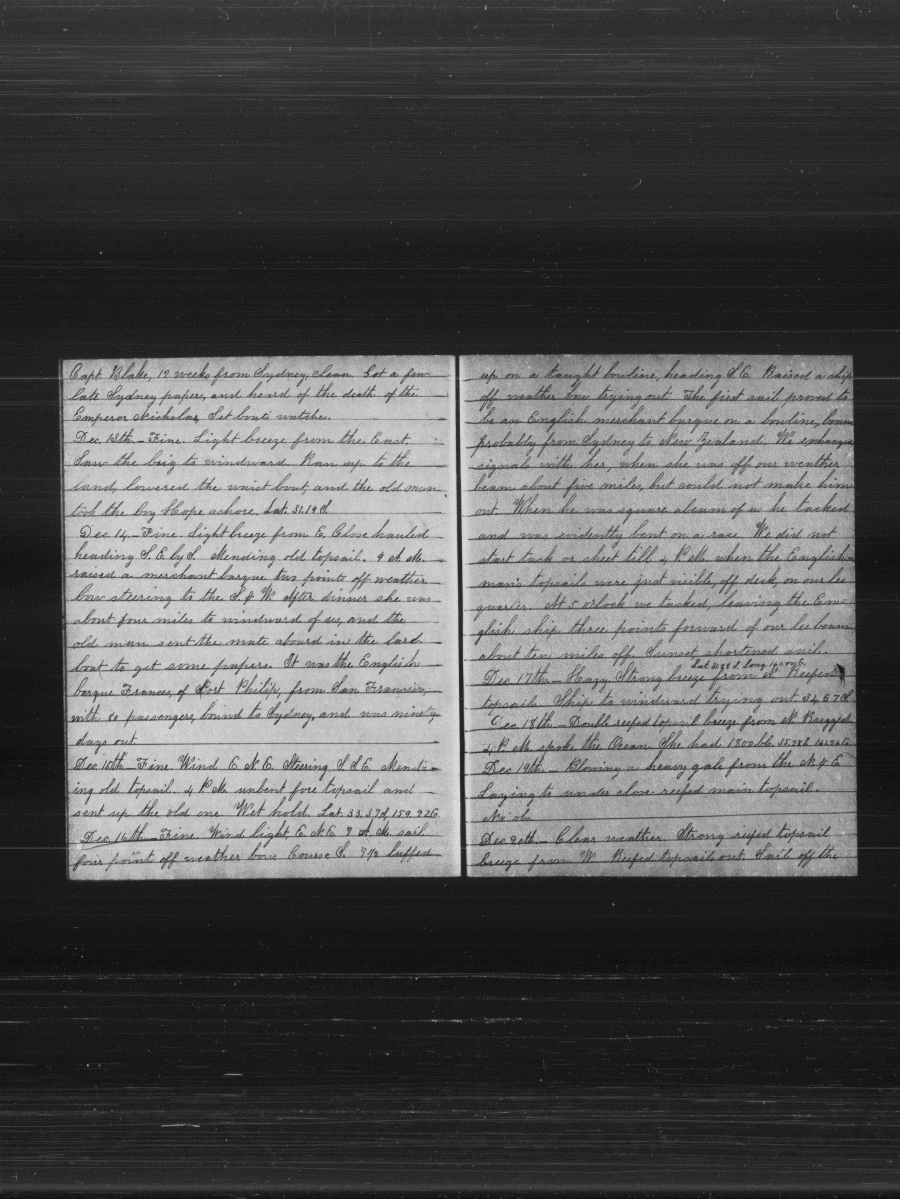 Capt. Blake, 12 weeks from Sydney, clean. Got a few
late Sydney papers, and heard of the death of the
Emperor Nicholas. Set boats watches.
Dec. 13th — Fine. Light breeze from the East.
Saw the brig to windward. Ran up to the
land, lowered the waist boat, and the old man
took the boy Hope ashore. Lat. 31.19 S
Dec. 14 — Fine. Light breeze from E. Close hauled
heading S.E. by S. Mending old topsail. 9 A.M.
raised a merchant barque two points off weather
bow steering to the S & W. After dinner she was
about four miles to windward of us, and the
old man sent the mate aboard in the larb
boat to get some papers. It was the English
barque Frances, of Port Philip, from San Francisco,
with 80 passengers, bound to Sydney, and was ninety
days out
Dec 15th Fine. Wind E.N.E. Steering S.S.E. Mend-
ing old topsail. 4 P.M. unbent fore topsail and
sent up the old one. Wet hold. Lat. 33.37 S, 159.22 E.
Dec. 16th — Fine. Wind light E.N.E. 7 A.M. sail
four points off weather bow. Course S. 7 1/2 luffed
up on a taught bowline, heading S.E. Raised a ship
off weather bow trying out. The first sail proved to
be an English merchant barque on a bowline, bound
probably from Sydney to New Zealand. We exchanged
signals with her, when she was off our weather
beam about five miles, but could not make him
out. When he was square abeam of us he tacked
and was evidently bent on a race. We did not
start tack or sheet till 4 P.M. when the English
man's topsails were just visible, off deck, on our lee
quarter. At 5 o'clock we tacked, leaving the Eng
glish ship three points forward of our lee beam
about ten miles off. Sunset shortened sail.
Lat. S. Long. E.
Dec 17th — Hazy. Strong breeze from N. Reefed
topsails. Ship to windward trying out. 34,57 S
Dec 18th — Double reefed topsail breeze from N. Rugged
4 P.M. spoke the Ocean. She had 1800 bbls.
Dec 19th — Blowing a heavy gale from the N & E
Laying to under close reefed main topsail.
No obs.
Dec 20th — Clear weather. Strong reefed topsail
breeze from W. Reefed topsails out. Sail off the